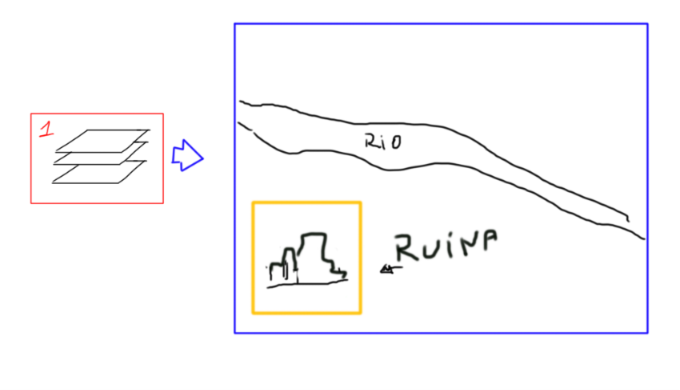 1
Rio
RUiNA